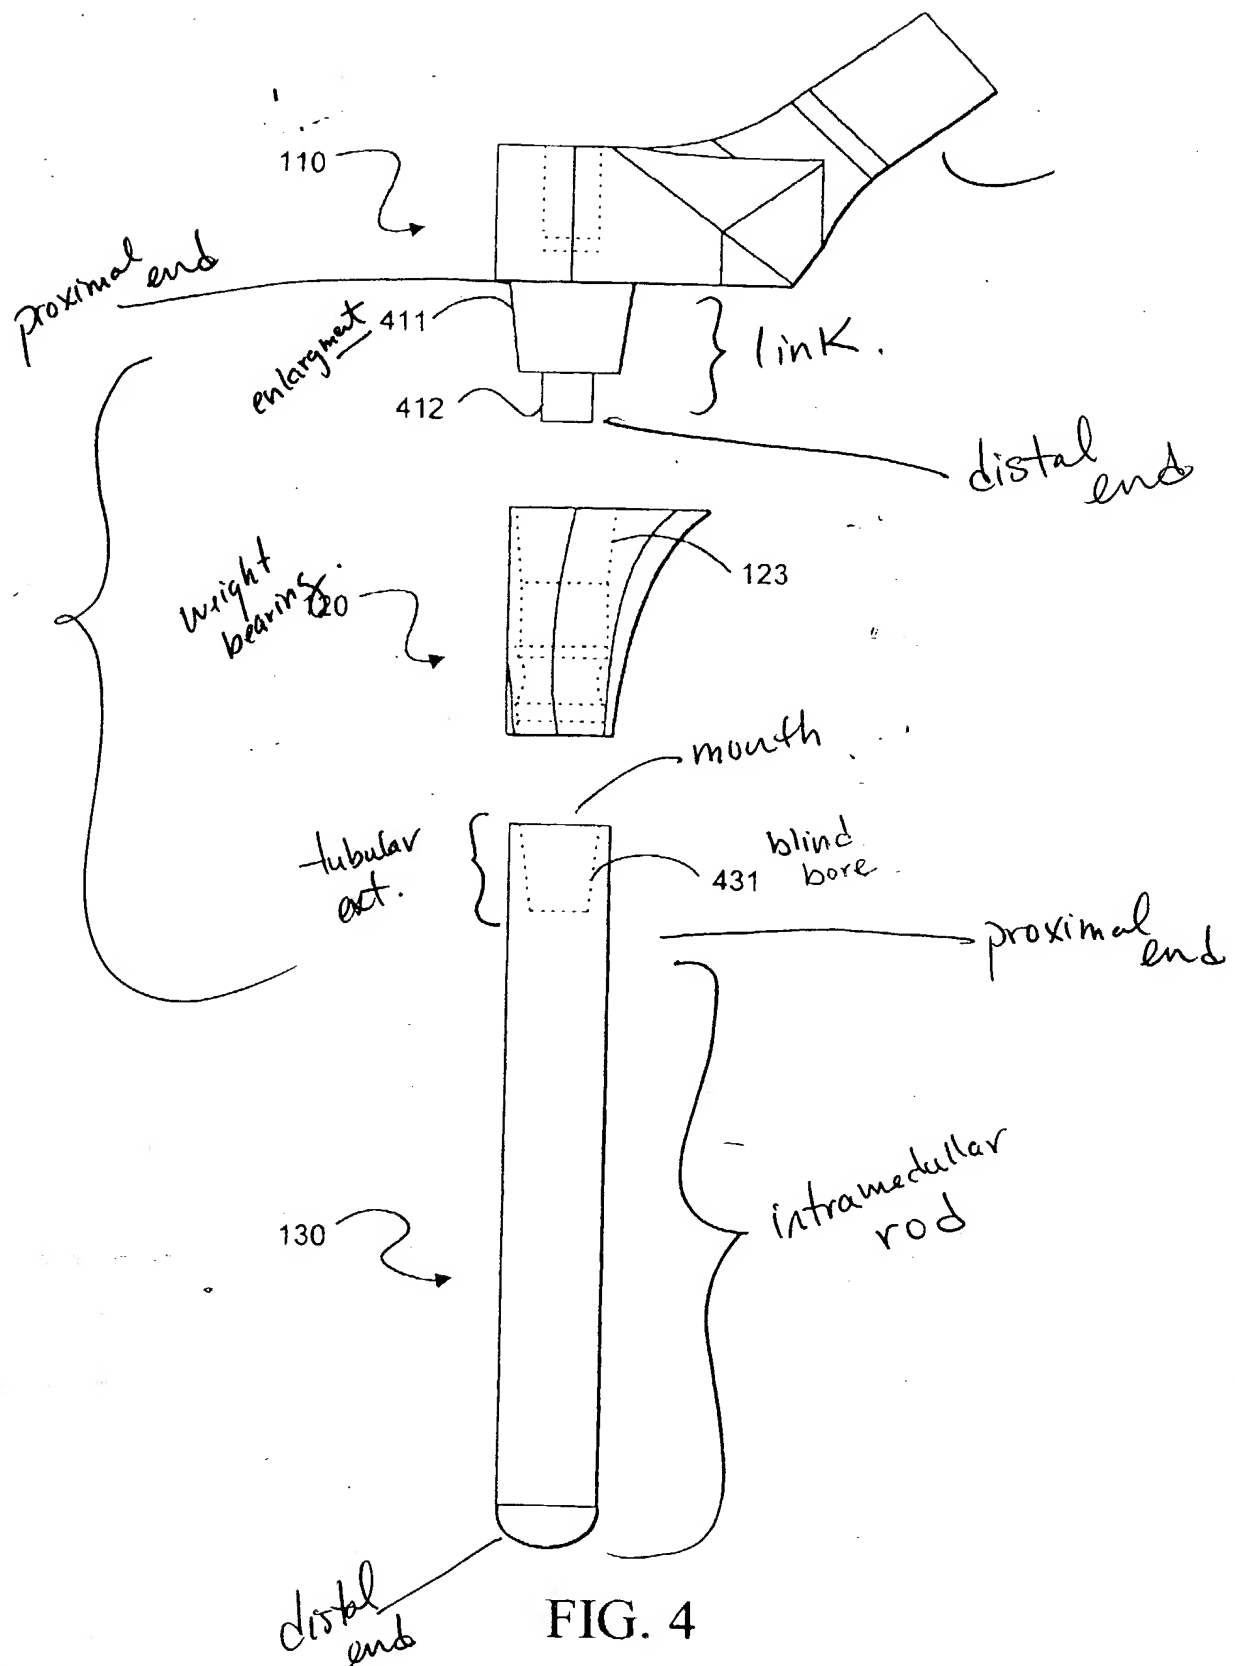 110
proximal
end
enlargment
411
link.
412
distal
end
123
weight
bearing.
120
mouth
tubular
ext.
431
blind
bore
proximal
end
intramedullar
rod
130
distal
end
FIG. 4